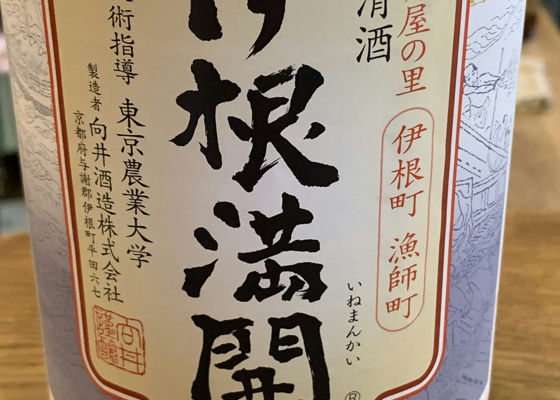 屋の里
伊根町 漁師町
清酒
伊根満開
いねまんかい
®
術指導 東京農業大学
製造者 向井酒造株式会社
京都府与謝郡伊根町平田六七
向井